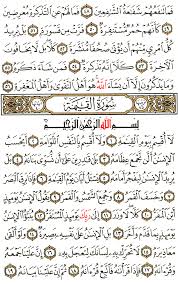 فَمَا تَنفَعُهُمْ شَفَٰعَةُ ٱلشَّٰفِعِينَ ٤٨ فَمَا لَهُمْ عَنِ ٱلتَّذْكِرَةِ مُعْرِضِينَ ٤٩
كَأَنَّهُمْ حُمُرٌ مُّسْتَنفِرَةٌ ٥٠ فَرَّتْ مِن قَسْوَرَةٍۭ ٥١ بَلْ يُرِيدُ
كُلُّ ٱمْرِئٍ مِّنْهُمْ أَن يُؤْتَىٰ صُحُفًا مُّنَشَّرَةً ٥٢ كَلَّا بَل لَّا يَخَافُونَ
ٱلْءَاخِرَةَ ٥٣ كَلَّآ إِنَّهُۥ تَذْكِرَةٌ ٥٤ فَمَن شَآءَ ذَكَرَهُۥ ٥٥
وَمَا يَذْكُرُونَ إِلَّآ أَن يَشَآءَ ٱللَّهُ هُوَ أَهْلُ ٱلتَّقْوَىٰ وَأَهْلُ ٱلْمَغْفِرَةِ ٥٦
سُورَةُ القِيَامَةِ
بِسْمِ ٱللَّهِ ٱلرَّحْمَٰنِ ٱلرَّحِيمِ
لَآ أُقْسِمُ بِيَوْمِ ٱلْقِيَٰمَةِ ١ وَلَآ أُقْسِمُ بِٱلنَّفْسِ ٱللَّوَّامَةِ ٢ أَيَحْسَبُ
ٱلْإِنسَٰنُ أَلَّن نَّجْمَعَ عِظَامَهُۥ ٣ بَلَىٰ قَٰدِرِينَ عَلَىٰٓ أَن نُّسَوِّىَ بَنَانَهُۥ ٤ بَلْ
يُرِيدُ ٱلْإِنسَٰنُ لِيَفْجُرَ أَمَامَهُۥ ٥ يَسْـَٔلُ أَيَّانَ يَوْمُ ٱلْقِيَٰمَةِ ٦ فَإِذَا بَرِقَ
ٱلْبَصَرُ ٧ وَخَسَفَ ٱلْقَمَرُ ٨ وَجُمِعَ ٱلشَّمْسُ وَٱلْقَمَرُ ٩ يَقُولُ
ٱلْإِنسَٰنُ يَوْمَئِذٍ أَيْنَ ٱلْمَفَرُّ ١٠ كَلَّا لَا وَزَرَ ١١ إِلَىٰ رَبِّكَ يَوْمَئِذٍ ٱلْمُسْتَقَرُّ ١٢ يُنَبَّؤُا۟ ٱلْإِنسَٰنُ
يَوْمَئِذٍۭ بِمَا قَدَّمَ وَأَخَّرَ ١٣ بَلِ ٱلْإِنسَٰنُ عَلَىٰ نَفْسِهِۦ بَصِيرَةٌ ١٤ وَلَوْ أَلْقَىٰ
مَعَاذِيرَهُۥ ١٥ لَا تُحَرِّكْ بِهِۦ لِسَانَكَ لِتَعْجَلَ بِهِۦٓ ١٦ إِنَّ عَلَيْنَا جَمْعَهُۥ
وَقُرْءَانَهُۥ ١٧ فَإِذَا قَرَأْنَٰهُ فَٱتَّبِعْ قُرْءَانَهُۥ ١٨ ثُمَّ إِنَّ عَلَيْنَا بَيَانَهُۥ ١٩